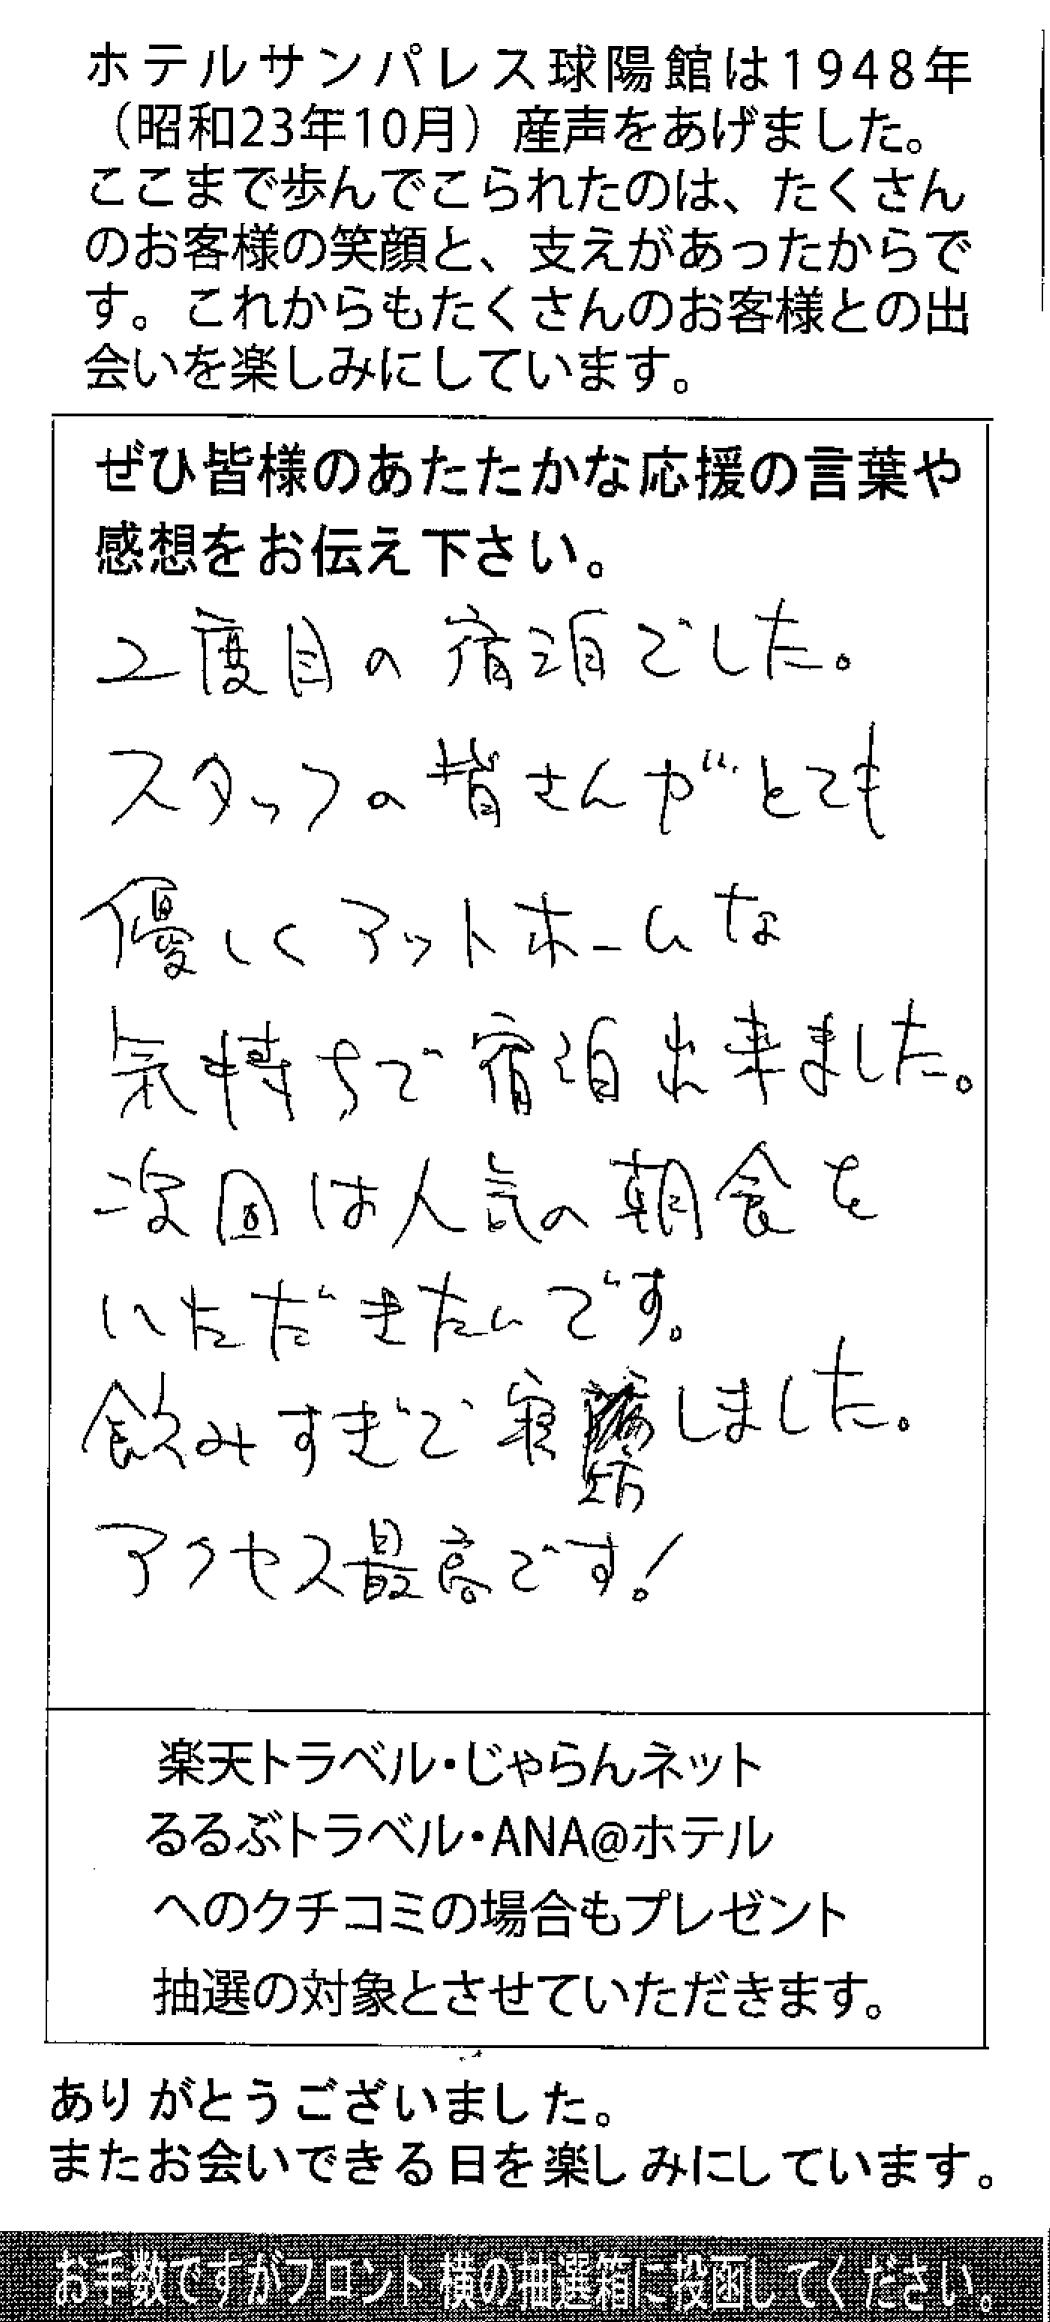 ホテルサンパレス球陽館は1948年
（昭和23年10月）産声をあげました。
ここまで歩んでこられたのは、たくさん
のお客様の笑顔と、支えがあったからで
す。これからもたくさんのお客様との出
会いを楽しみにしています。
ぜひ皆様のあたたかな応援の言葉や
感想をお伝え下さい。
2度目の宿泊でした。
スタッフの皆さんがとても
優しくアットホームな
気持ちで宿泊出来ました。
次回は人気の朝食を
いただきたいです。
飲みすぎで寝坊しました。
アクセス最高です!
楽天トラベル・じゃらんネット
るるぶトラベル・ANA@ホテル
へのクチコミの場合もプレゼント
抽選の対象とさせていただきます。
ありがとうございました。
またお会いできる日を楽しみにしています。
お手数ですがフロント横の抽選箱に投函してください。